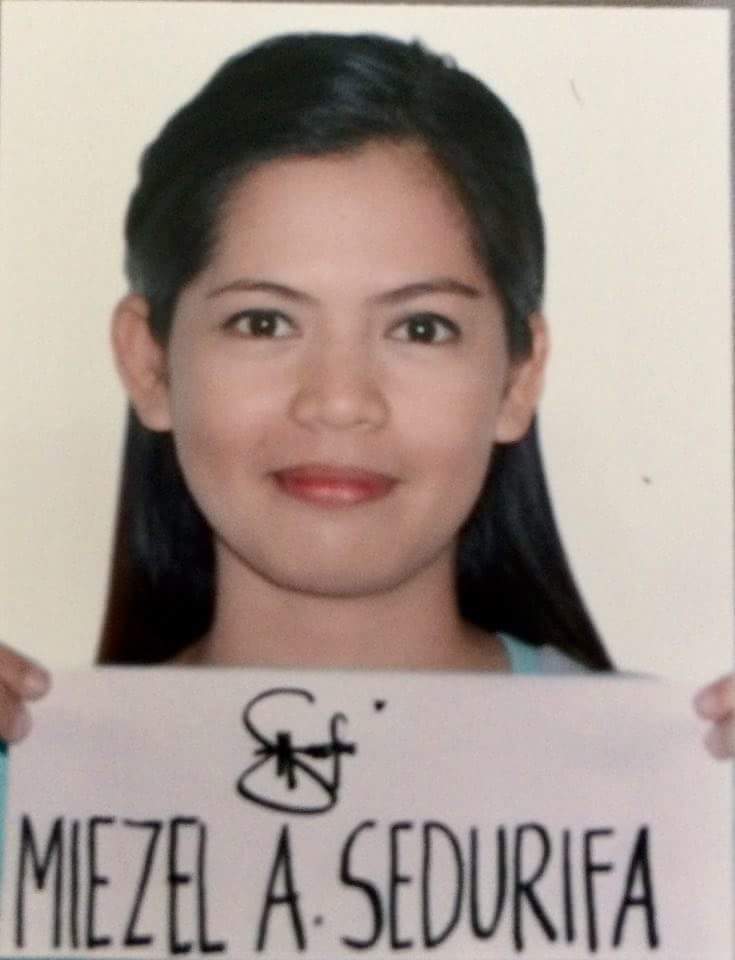 MIEZEL A. SEDURIFA